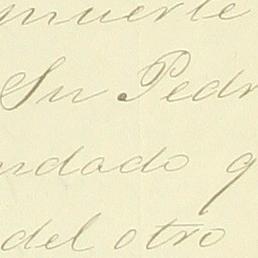 muerte
Su Pedr
ndado q
del otro